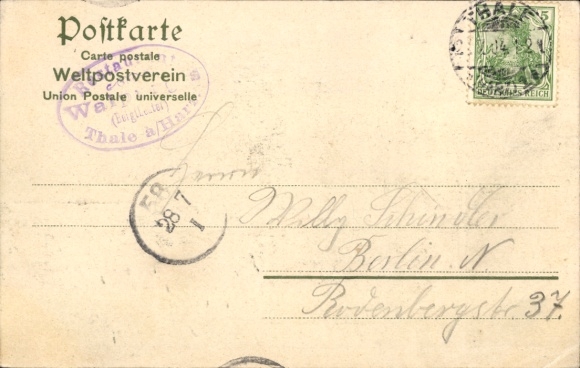 Postkarte
Carte postale
Weltpostverein
Union Postale universelle
Thale a/Harz
THALE
5
DEUTSCHES REICH
28 7
Herrn
Willy Schindler
Berlin N
Rodenbergstr. 37.